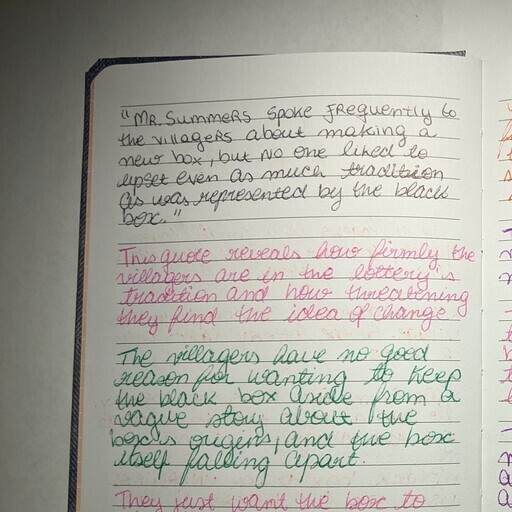 "Mr. Summers spoke frequently to
the villagers about making a
new box, but no one liked to
upset even as much tradition
as was represented by the black
box."
This quote reveals how firmly the
villagers are in the lottery's
tradition and how threatening
they find the idea of change
The villagers have no good
reason for wanting to keep
the black box aside from a
vague story about the
box's origins, and the box
itself falling apart.
They just want the box to